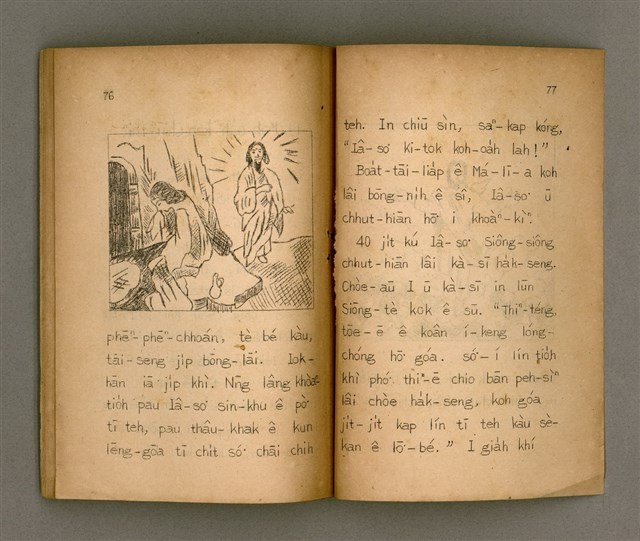 76
phēⁿ-phēⁿ-chhoán, tè bé kàu,
tāi-seng ji̍p bōng-lāi. Iok-
hān iā ji̍p khì. Nn̄g lâng khòaⁿ-
tio̍h pau Iâ-so͘ sin-khu ê pò͘
tī teh, pau thâu-khak ê kun
lēng-gōa tī chi̍t só͘-chāi chih
77
teh. In chiū sìn, saⁿ-kap kóng,
"Iâ-so͘ ki-tok koh-oa̍h lah!"
Boa̍t-tāi-lia̍p ê Má-lī-a koh
lâi bōng-ni̍h ê sî, Iâ-so͘ ū
chhut-hiān hō͘ i khoàⁿ-kìⁿ.
40 ji̍t kú Iâ-so͘ Siông-siông
chhut-hiān lâi kà-sī ha̍k-seng.
Chòe-āu I ū kà-sī in lūn
Siōng-tè kok ê sū. "Thiⁿ-téng,
tōe-ē ê koân í-keng lóng-
chóng hō͘ góa. só͘-í lín tio̍h
khì phó͘-thiⁿ-ē chio bān peh-sìⁿ
lâi chòe ha̍k-seng, koh góa
ji̍t-ji̍t kap lín tī teh kàu sè-
kan ê lō͘-bé." I gia̍h khí